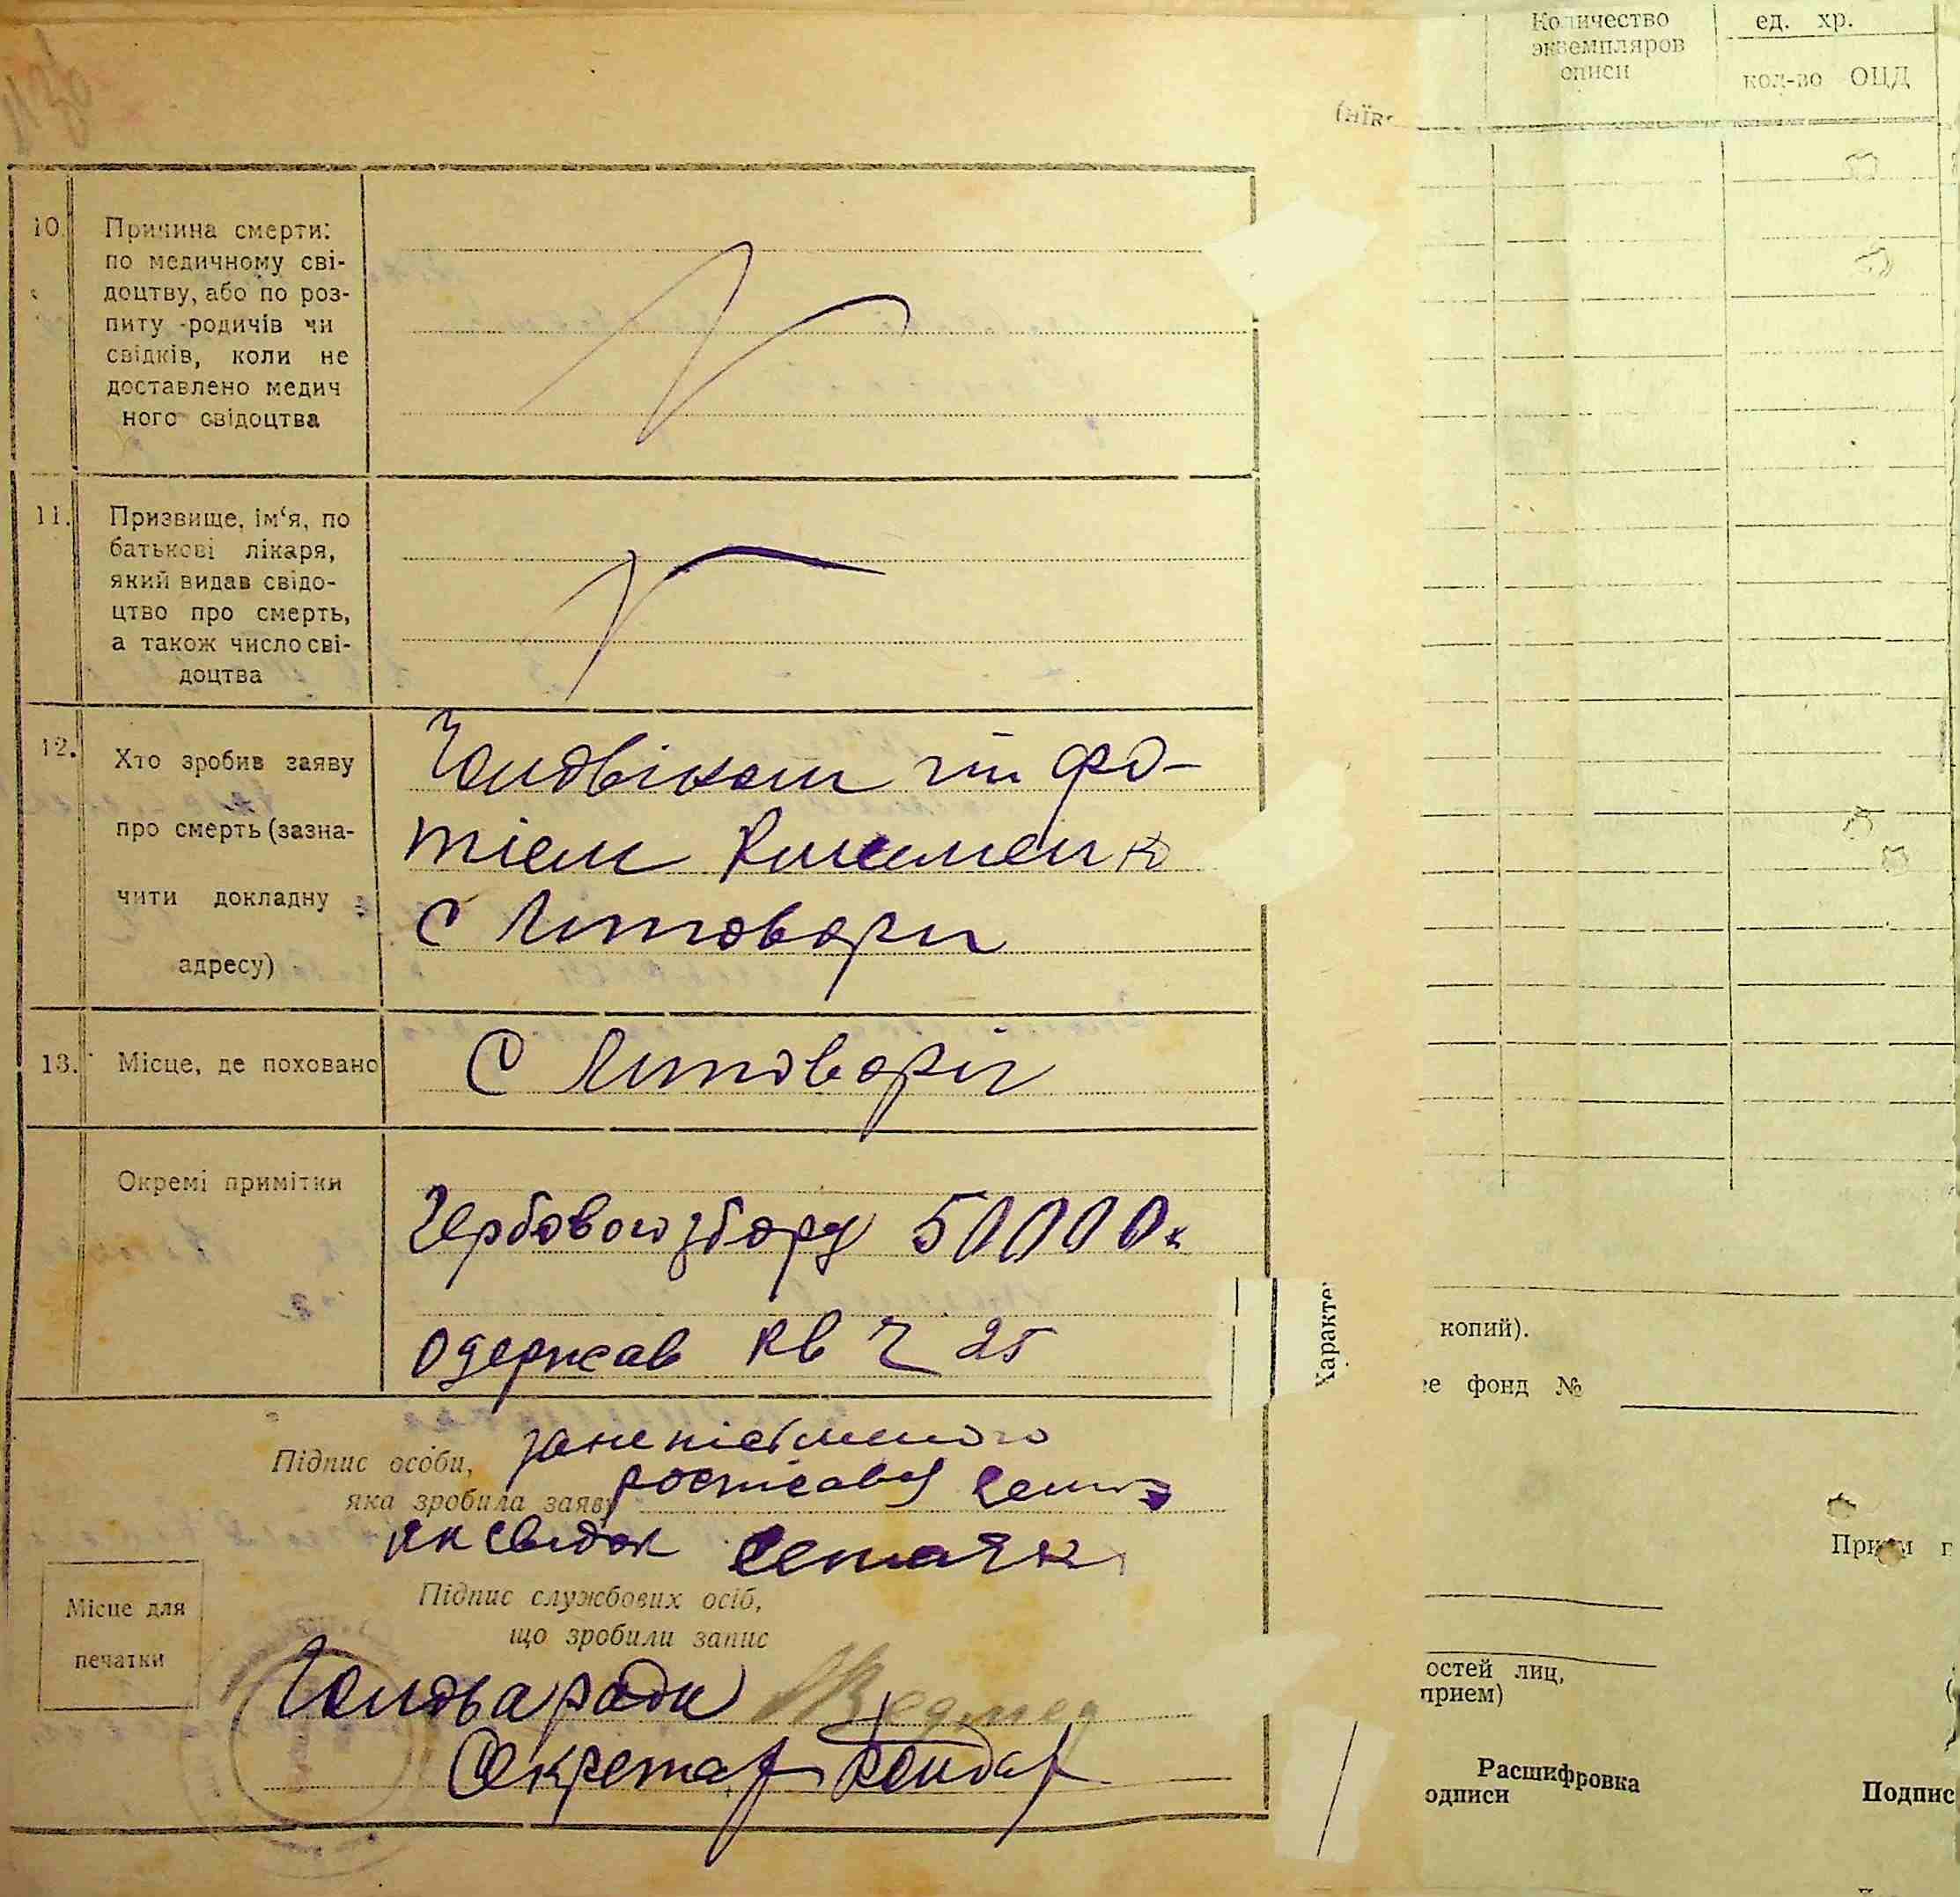 Количество
экземпляров
описи
ед. хр.
кол-во ОЦД
10.
Причина смерти:
по медичному сві-
доцтву, або по роз-
питу родичів чи
свідків, коли не
доставлено медич
ного свідоцтва
11.
Призвище, ім‘я, по
батькові лікаря,
який видав свідо-
цтво про смерть,
а також число сві-
доцтва
12.
Хто зробив заяву
про смерть (зазна-
чити докладну
адресу)
Фо-
тієм
с Литовари
13.
Місце, де поховано
С Литовари
Окремі примітки
Гербового збору 50000к
одержав кв Ч 25
Підпис особи,
яка зробила заяву
за неписьменого
як свідок
Підпис службових осіб,
що зробили запис
Місце для
печатки
Голова ради
Секретар Бондар
Характе
копий).
фонд №
Прием
остей лиц,
прием)
Расшифровка
одписи
Подпис